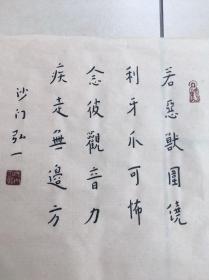 若惡獸圍繞
利牙爪可怖
念彼觀音力
疾走無邊方
沙门弘一